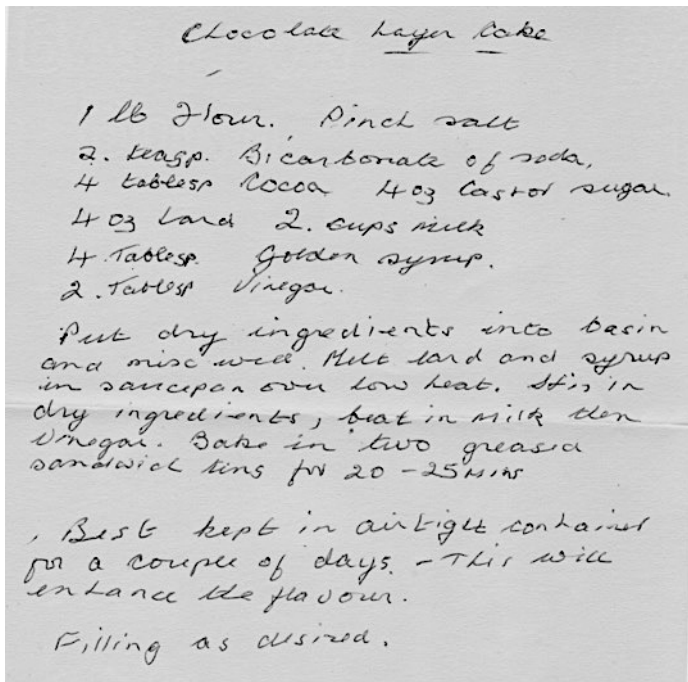 Chocolate Layer Cake
1 lb Flour. Pinch salt
2. teasp. Bicarbonate of soda,
4 tablesp Cocoa 4oz Castor sugar.
4 oz Lard 2. cups Milk
4. Tablesp. Golden syrup.
2. Tablesp Vinegar.
Put dry ingredients into basin
and mix well. Melt lard and syrup
in saucepan over low heat. Stir in
dry ingredients, beat in milk then
Vinegar. Bake in two greased
sandwich tins for 20 - 25 Mins
Best kept in airtight container
for a couple of days. - This will
enhance the flavour.
Filling as desired.